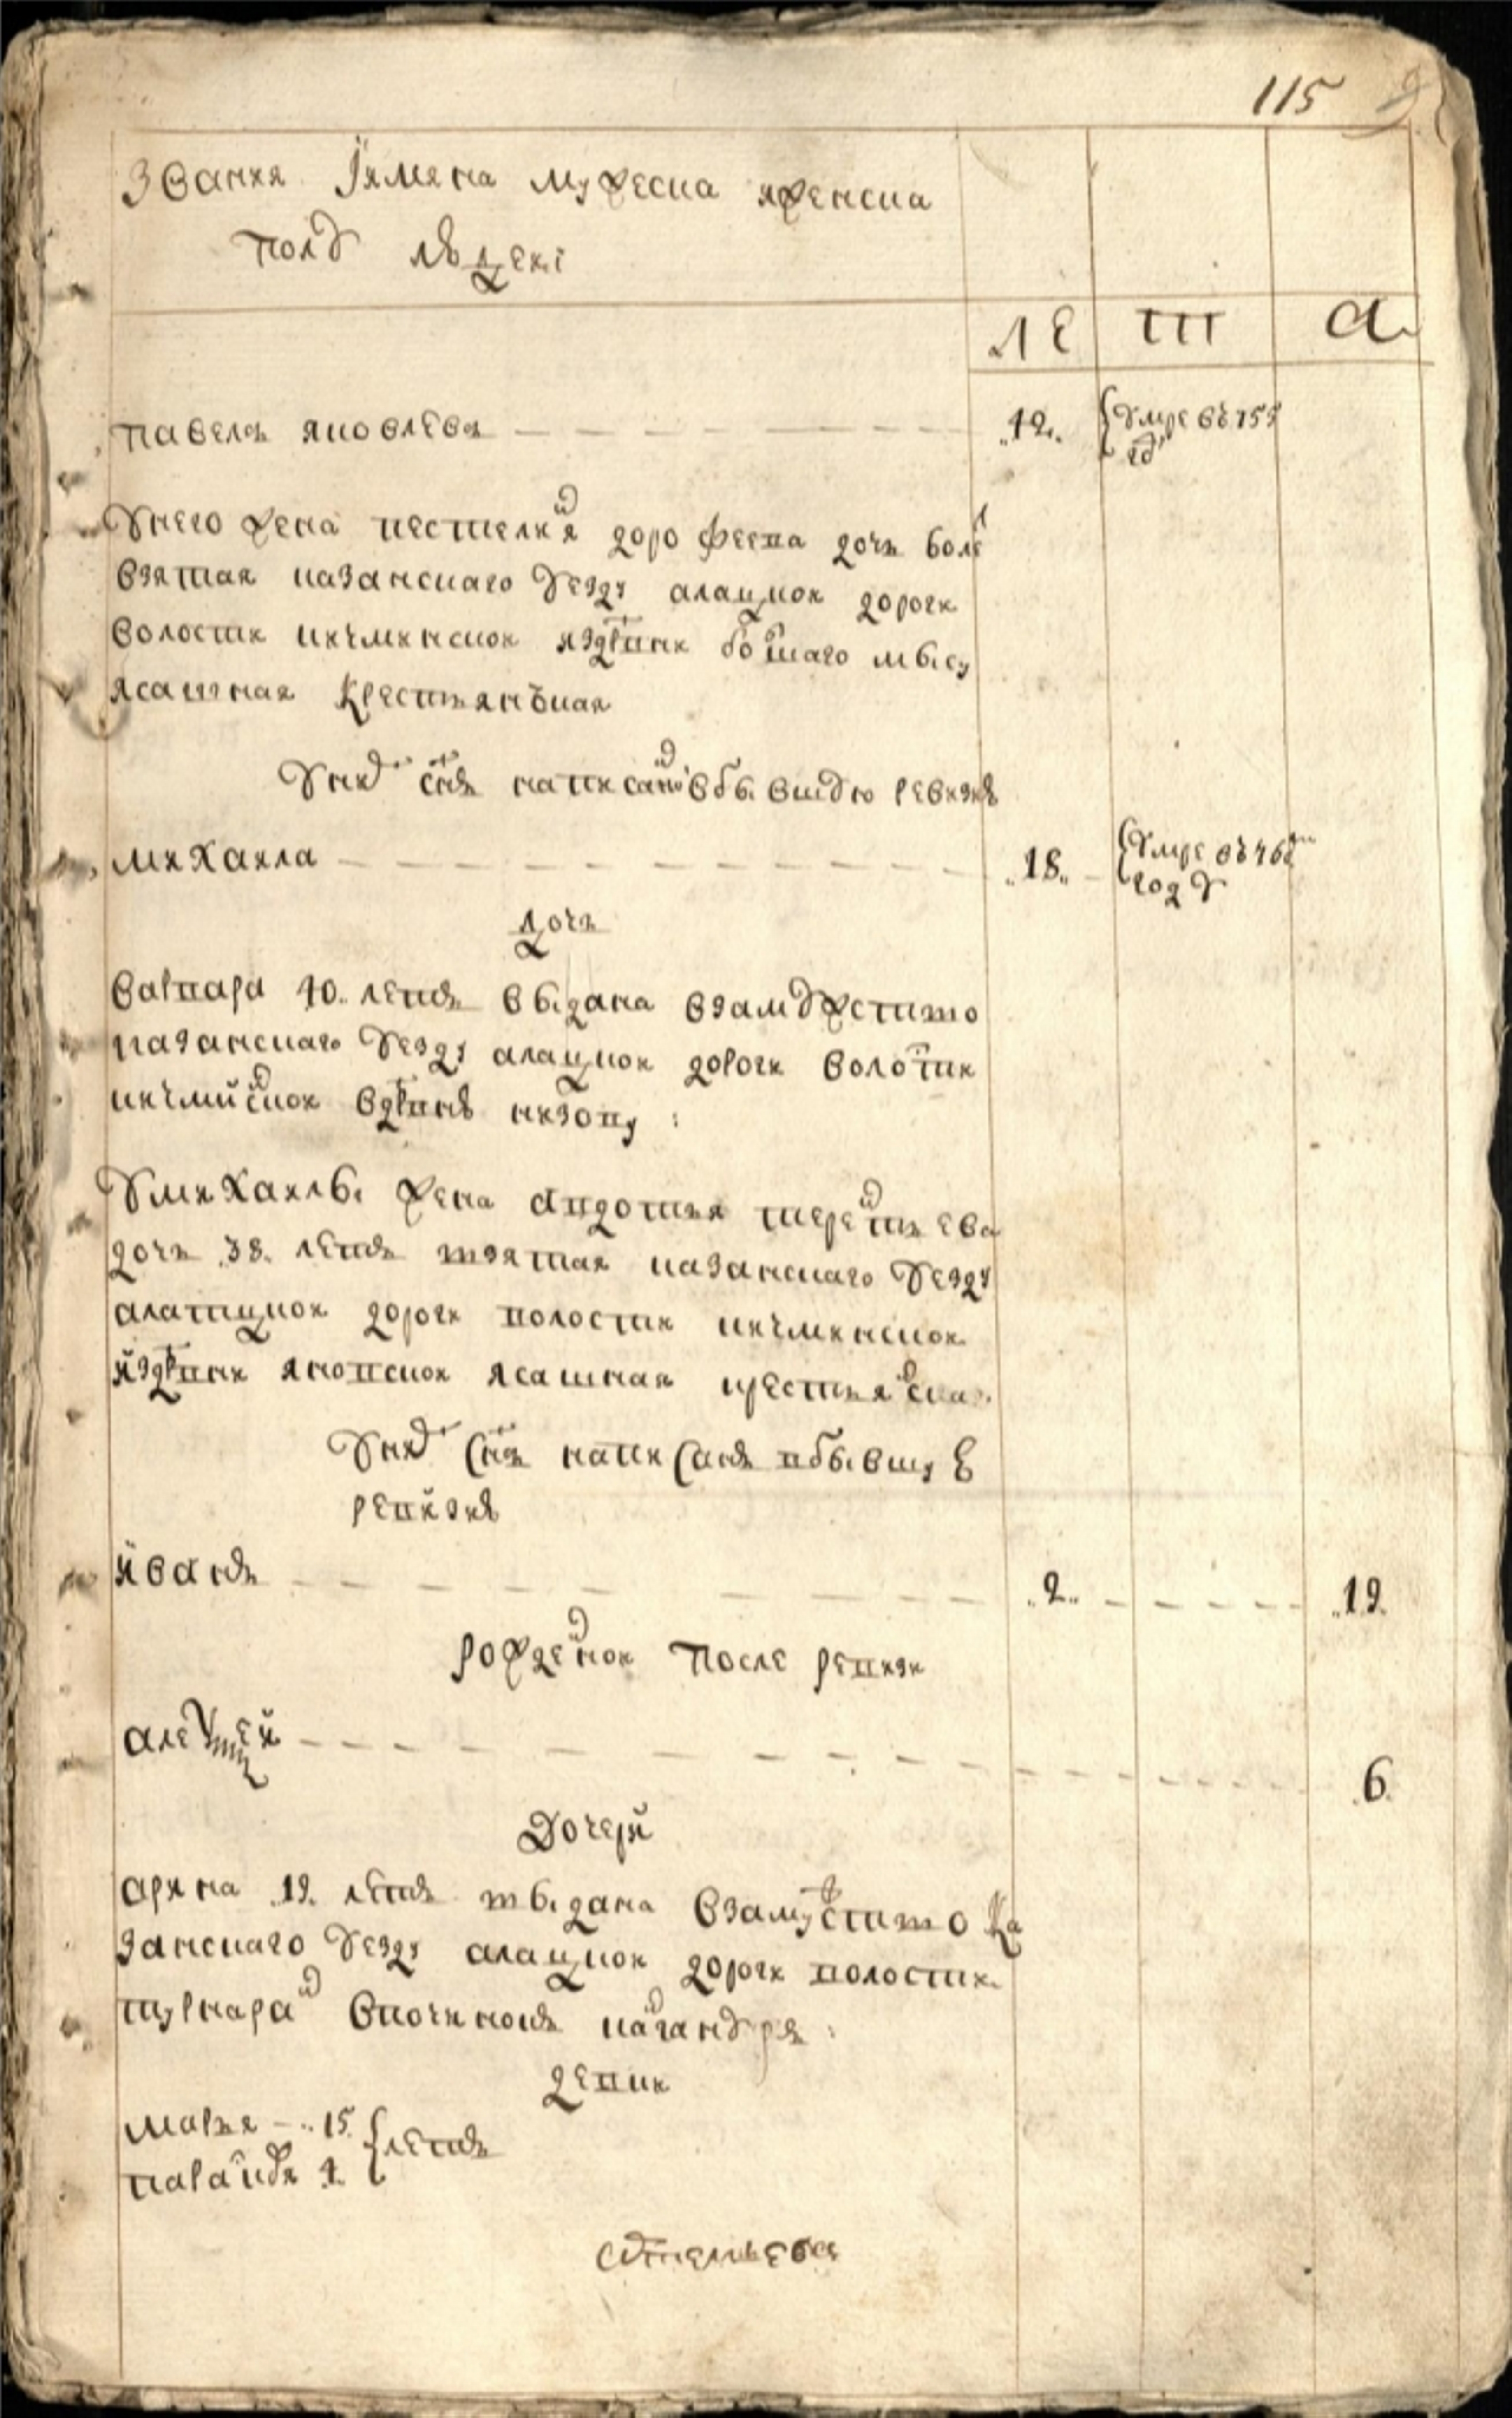 115
Звания Имяна мужеска иженска
полу людеи
ле т а
павелъ яковлевъ 42. умре въ 755 гду
Унего жена пестелиня дорофеева дочь
взятая казанскаго уезду алацкои дороги
волости кичминскои издрвни болшаго мысу
ясашная крестьянъская
Унихъ снъ написанъ вбывшую ревизию
михаила 18. умре въ 46
году
дочь
варвара 40. летъ выдана взамужство
казанскаго уезду алацкои дороги волости
кичминскои вдрвню низову:
Умихаилы жена авдотья терентьева
дочь 38. летъ взятая казанскаго уезду
алатцкои дороги волости кичминскои
издрвни яновскои ясашная крестьянская.
Унихъ снъ написанъ вбывшую
ревизию
иванъ 2. 19.
рожденои после ревизи
алексей 6.
Дочери
арина 19. летъ выдана взамужство ка
занскаго уезду алацкои дороги волости
впочинокъ
девки
марья 15. летъ
парасковья 4.